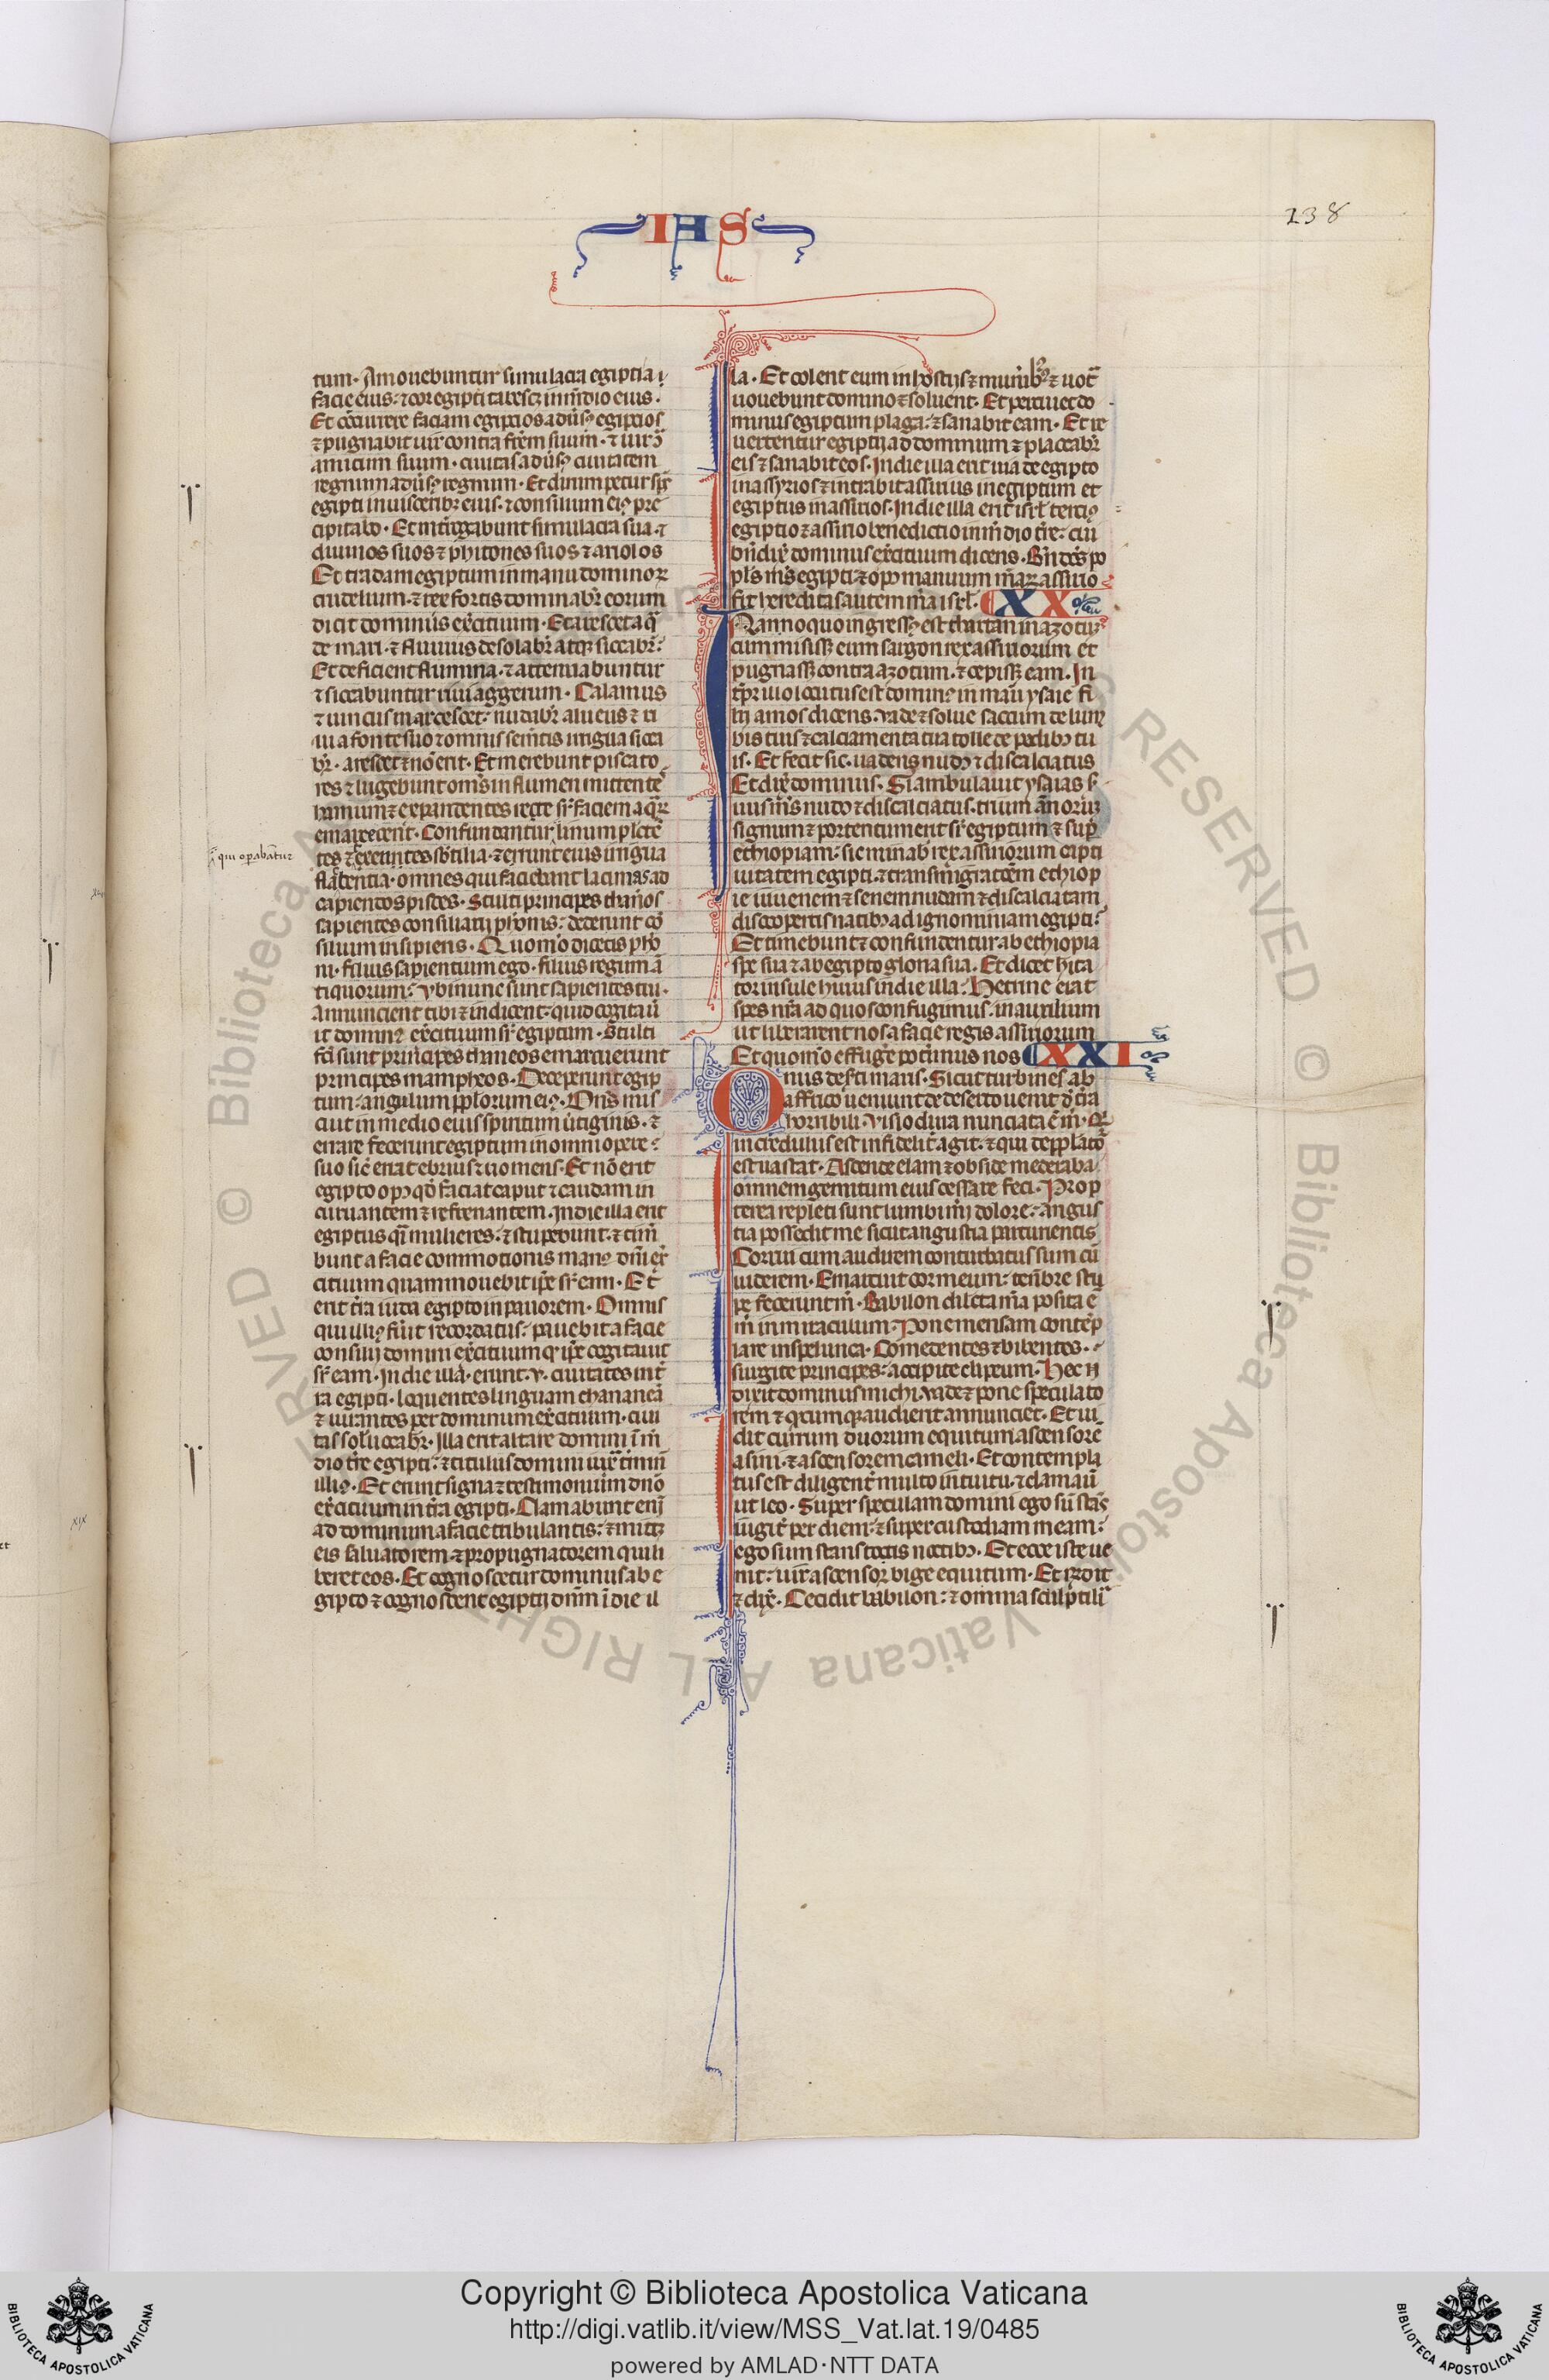 IAS
138
tum. Amouebuntur simulacra egiptia i
facie eius: ⁊ cor egipti tabescꝫ in mͥdio eius.
Et ꝯcurrere faciam egiptios adūsꝫ egiptios
⁊ pugnabit uir contra frēm suum. ⁊ uir ꝯ̄
amicum suum. ciuitas adūsꝫ ciuitatem
regnum adūsꝫ regnum. Et dirumpetur sp̄s
egipti in uiscerib; eius. ⁊ consilium eiꝰ pre
cipitabo. Et int̾rogabunt simulacra sua. ⁊
diuinos suos ⁊ phitones suos ⁊ ariolos
Et tradam egiptum in manu dominoꝝ
crudelium. ⁊ rex fortis dominabr̄ eorum
dicit dominus ex̾cituum. Et arescet aq̄
de mari. ⁊ fluuius desolabr̄ atqꝫ siccabr̄.
Et deficient flumina. ⁊ attenuabuntur
⁊ siccabuntur riui aggerum. Calamus
⁊ iuncus marcescet: nudabr̄ alueus ⁊ ri
ui a fonte suo ⁊ omnis sem̄tis irrigua sicca
br̄. arescet ⁊ nō erit. Et merebunt piscato
res ⁊ lugebunt om̄s in flumen mittente
hamum ⁊ expandentes rete sr̄ faciem aq̄ꝝ
emarcecent. Confundantur linum plctē
tes ⁊ texentes sb̄tilia. ⁊ errunt eius irrigua
qui op̄abātur
flaccentia. omnes qui faciebant lacunas ad
capiendos pisces. Stulti principes thaneos
sapientes consiliarij pharonis: dederunt cō
silium insipiens. Quomō dicetis phō
ni. filius sapientium ego. filius regum ā
tiquorum: Vbi nunc sunt sapientes tui.
annuncient tibi ⁊ indicent: quid cogitaū
it dominꝰ ex̾cituum sr̄ egiptum. Stulti
fc̄i sunt principes thaneos emarcuerunt
principes mampheos. Deceperunt egip
tum: angulum pplorum eiꝰ. Dn̄s mis
cuit in medio eius spiritum u̾tiginis. ⁊
errare fecerunt egiptum in omni opere
suo sic̄ errat ebrius ⁊ uomens. Et nō erit
egipto opꝰ qd̄ faciat caput ⁊ caudam in
curuantem ⁊ refrenantem. In die illa erit
egiptus q̄i mulieres. ⁊ stupebunt. ⁊ tim̄
bunt a facie commotionis manꝰ dn̄i ex̾
cituum quam mouebit ip̄e sr̄ eam. Et
erit t̾ra iuda egipto in pauorem. Omnis
qui illiꝰ fūit recordatus: pauebit a facie
consilij domini ex̾cituum q̄ ip̄e cogitauit
sr̄ eam. In die illa. erunt. v. ciuitates in t̾
ra egipti. loquentes linguam chananeā
⁊ iurantes per dominum ex̾cituum. ciui
tas sol̾ uocabr̄. Illa erit altare domini ī m̄
dio t̾re egipti: ⁊ titulus domini iux̄ t̾minū
illiꝰ. Et erunt signa ⁊ testimonium dn̄o
ex̾cituum in t̾ra egipti. Clamabunt enī
ad dominum a facie tribulantis: ⁊ mittꝫ
eis saluatorem ⁊ propugnatorem qui li
beret eos. Et cognoscetur dominus ab e
gipto ⁊ cognoscent egiptij dn̄m ī die il
la. Et colent eum in hostijs ⁊ munerib; ⁊ uota
uouebunt domino ⁊ soluent. Et percutiet do
minus egiptum plaga: ⁊ sanabit eam. Et re
uertentur egiptij ad dominum ⁊ placabr̄
eis ⁊ sanabit eos. In die illa erit uia de egipto
in assyrios ⁊ intrabit assirius in egiptum et
egiptus in assirios. In die illa erit isrl̄ terciꝰ
egiptio ⁊ assirio benedictio in m̄dio t̾re: cui
bn̄dix̾ dominus ex̾cituum dicens. Bn̄dc̄s po
pls̄ m̄s egipti ⁊ opꝰ manuum m̄aꝝ assirio
fit hereditas autem m̄a isrl̄. XX
Nanno quo ingressꝰ est thartan in azotū
cum misissꝫ eum sargon rex assiriorum et
pugnassꝫ contra azotum. ⁊ cepissꝫ eam. In
tp̄r illo locutus est dominꝰ in manu ysaie fi
lij amos dicens. Vade ⁊ solue saccum de lum
bis tuis ⁊ calciamenta tua tolle de pedibꝰ tu
is. Et fecit sic. uadens nudꝰ ⁊ discalciatus
Et dix̾ dominus. Si ambulauit ysaias s̾
uus m̄s nudꝰ ⁊ discalciatus. trium ānorū
signum ⁊ portentum erit sr̄ egiptum ⁊ sup̄
ethiopiam: sic minab̄ rex assiriorum capti
uitatem egipti. ⁊ transmigratōem ethiop
ie iuuenem ⁊ senem nudam ⁊ discalciatam
discoopertis natibꝰ ad ignominiam egipti:
Et timebunt ⁊ confundentur ab ethiopia
spe sua ⁊ ab egipto gloria sua. Et dicet hita
tor insule huius in die illa. Hecine erat
spes nr̄a ad quos confugimus. in auxilium
ut liberarent nos a facie regis assiriorum
Et quomō effugere potimus nos XXI
Onus deserti maris. Sicut turbines ab
affrico ueniunt de deserto uenit d̄ t̾ra
horribili. Visio dura nunciata ē m̄. Q̄
incredulus est infidelit̾ agit. ⁊ qui depplatō
est uastat. Ascende elam ⁊ obside mede raba
omnem gemitum eius cessare feci. Prop
terea repleti sunt lumbi m̄i dolore: angus
tia possedit me sicut angustia parturientis
Corrui cum audirem conturbatus sum cū
uiderem. Emarcuit cor meum: teneb̄re stu
pe fecerunt m̄. Babilon dilecta m̄a posita ē
m̄ in miraculum: Pone mensam contēp
lare in specula. Comedentes ⁊ bibentes.
surgite principes: accipite clipeum. Hec n̄
dixit dominus michi. Vade ⁊ pone speculato
rem ⁊ q̄cumqꝫ audierit annunciet. Et ui
dit currum duorum equitum ascensorē
asini. ⁊ ascensorem cameli. Et contempla
tus est diligent̾ multo intuitu. ⁊ clamaū
ut leo. Super speculam domini ego sū stās
iugit̾ per diem: ⁊ super custodiam meam:
ego sum stans totis noctibꝰ. Et ecce iste ue
nit: uir ascensor bige equitum. Et rn̄dit
⁊ dix̾. Cecidit babilon: ⁊ omnia sculptili
xix
Biblioteca Apostolica Vaticana
ALL RIGHTS RESERVED ©
Copyright © Biblioteca Apostolica Vaticana
http://digi.vatlib.it/view/MSS_Vat.lat.19/0485
powered by AMLAD·NTT DATA
BIBLIOTECA APOSTOLICA VATICANA
BIBLIOTECA APOSTOLICA VATICANA